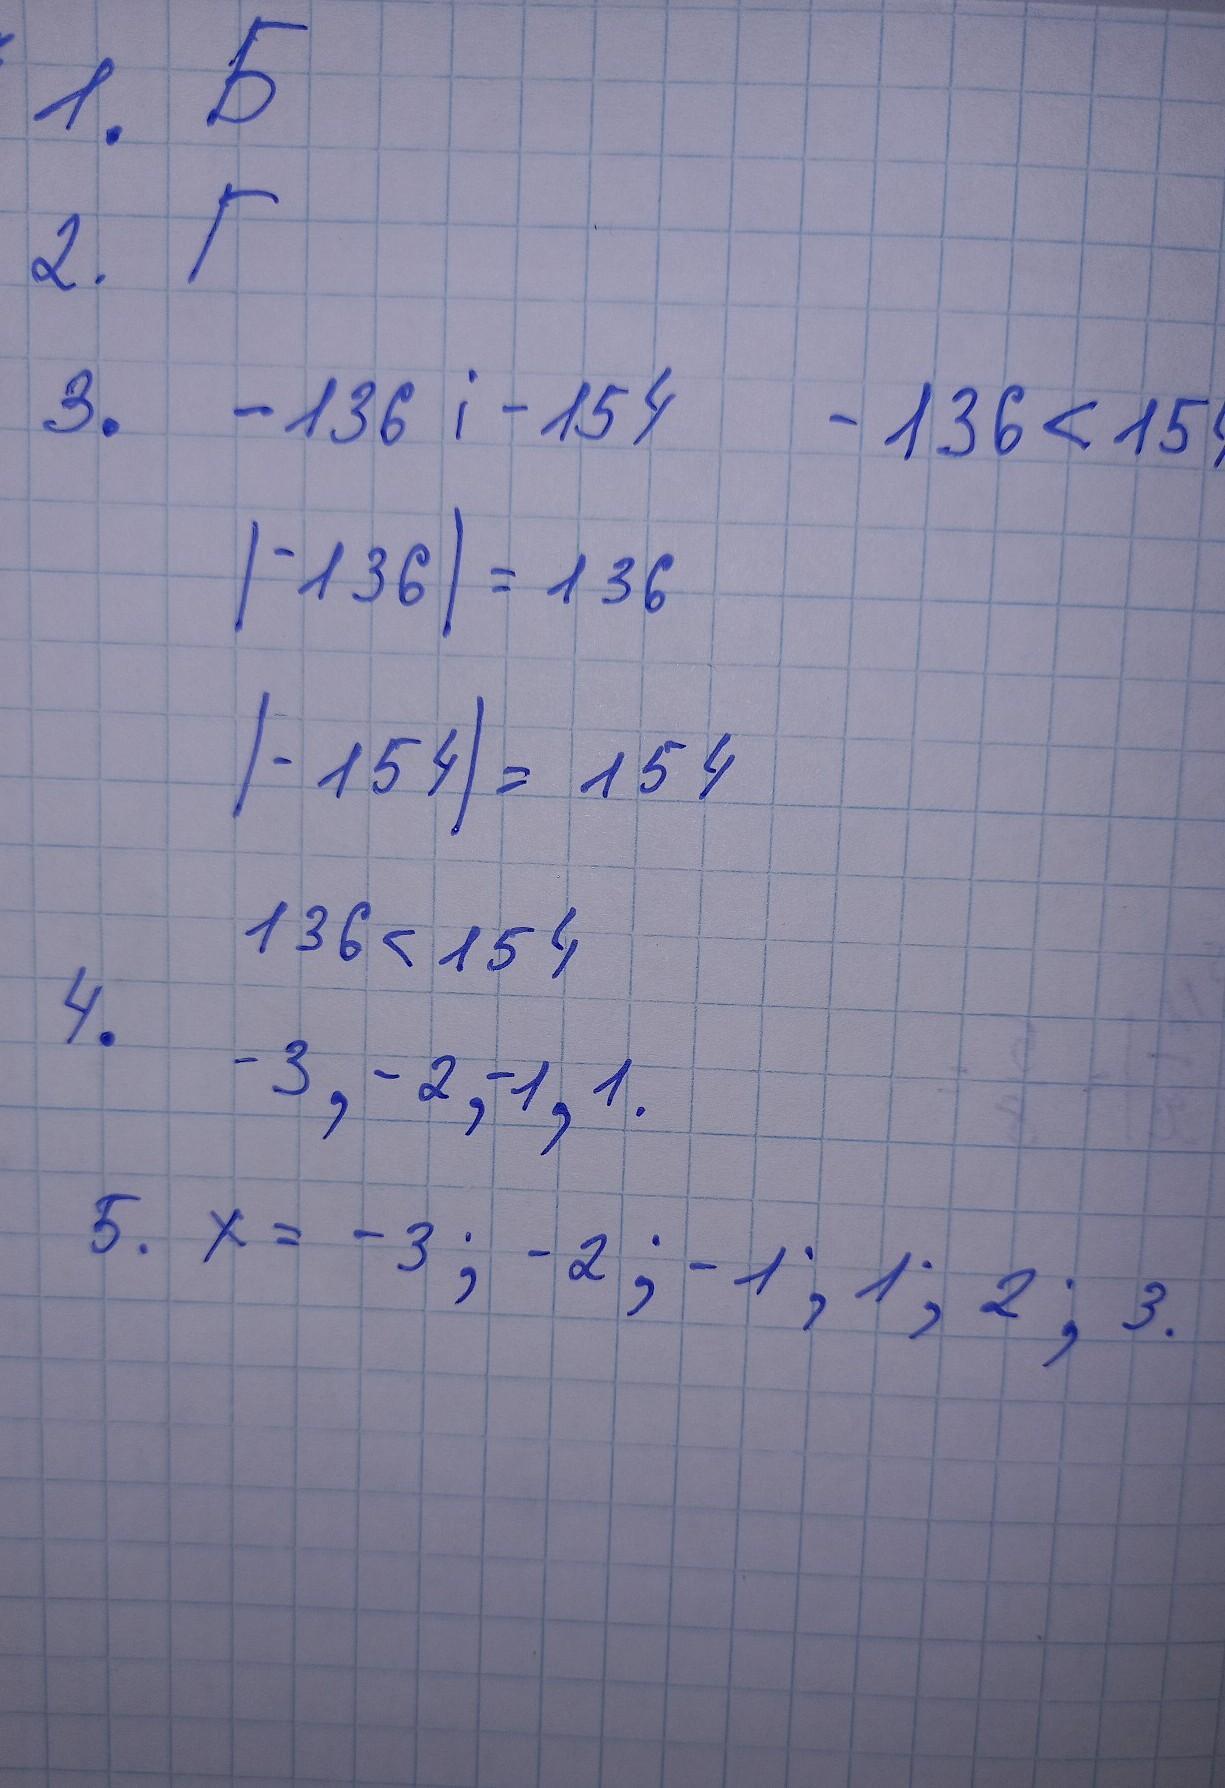 1. Б
2. Г
3. -136 і -154 -136<154
|-136| = 136
|-154| = 154
136<154
4.
-3, -2, -1, 1.
5. x = -3; -2; -1; 1; 2; 3.